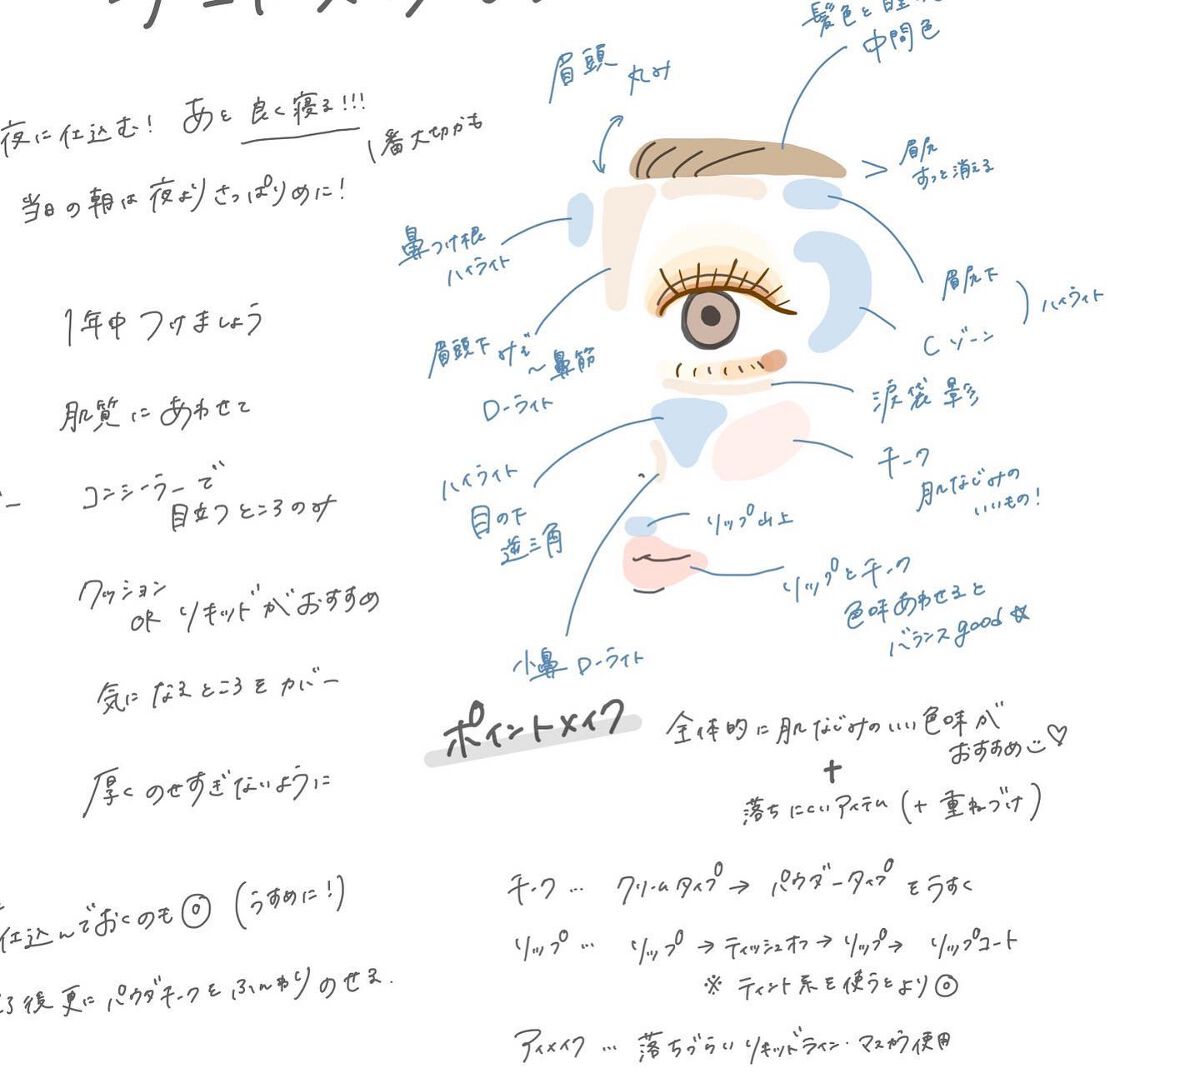 夜に仕込む! あと 良く寝る!!!
1番大切かも
当日の朝は夜よりさっぱりめに!
1年中つけましょう
肌質にあわせて
コンシーラーで
目立つところのみ
クッション
OR リキッドがおすすめ
気になるところをカバー
厚くのせすぎないように
仕込んでおくのも◎ (うすめに!)
後更にパウダチークをふんわりのせる.
眉頭 丸み
髪色と
中間色
眉尻
すっと消える
鼻つけ根
ハイライト
眉頭下くぼみ
~鼻筋
ローライト
眉尻下
Cゾーン
ハイライト
涙袋影
ハイライト
目の下
逆三角
チーク
肌なじみの
いいもの!
リップ山上
リップとチーク
色味あわせると
バランスgood☆
小鼻ローライト
ポイントメイク
全体的に肌なじみのいい色味が
おすすめ♡
+
落ちにくいアイテム (+ 重ねづけ)
チーク … クリームタイプ → パウダータイプをうすく
リップ … リップ → ティッシュオフ → リップ → リップコート
※ ティント系を使うとより◎
アイメイク … 落ちづらいリキッドライン・マスカラ使用